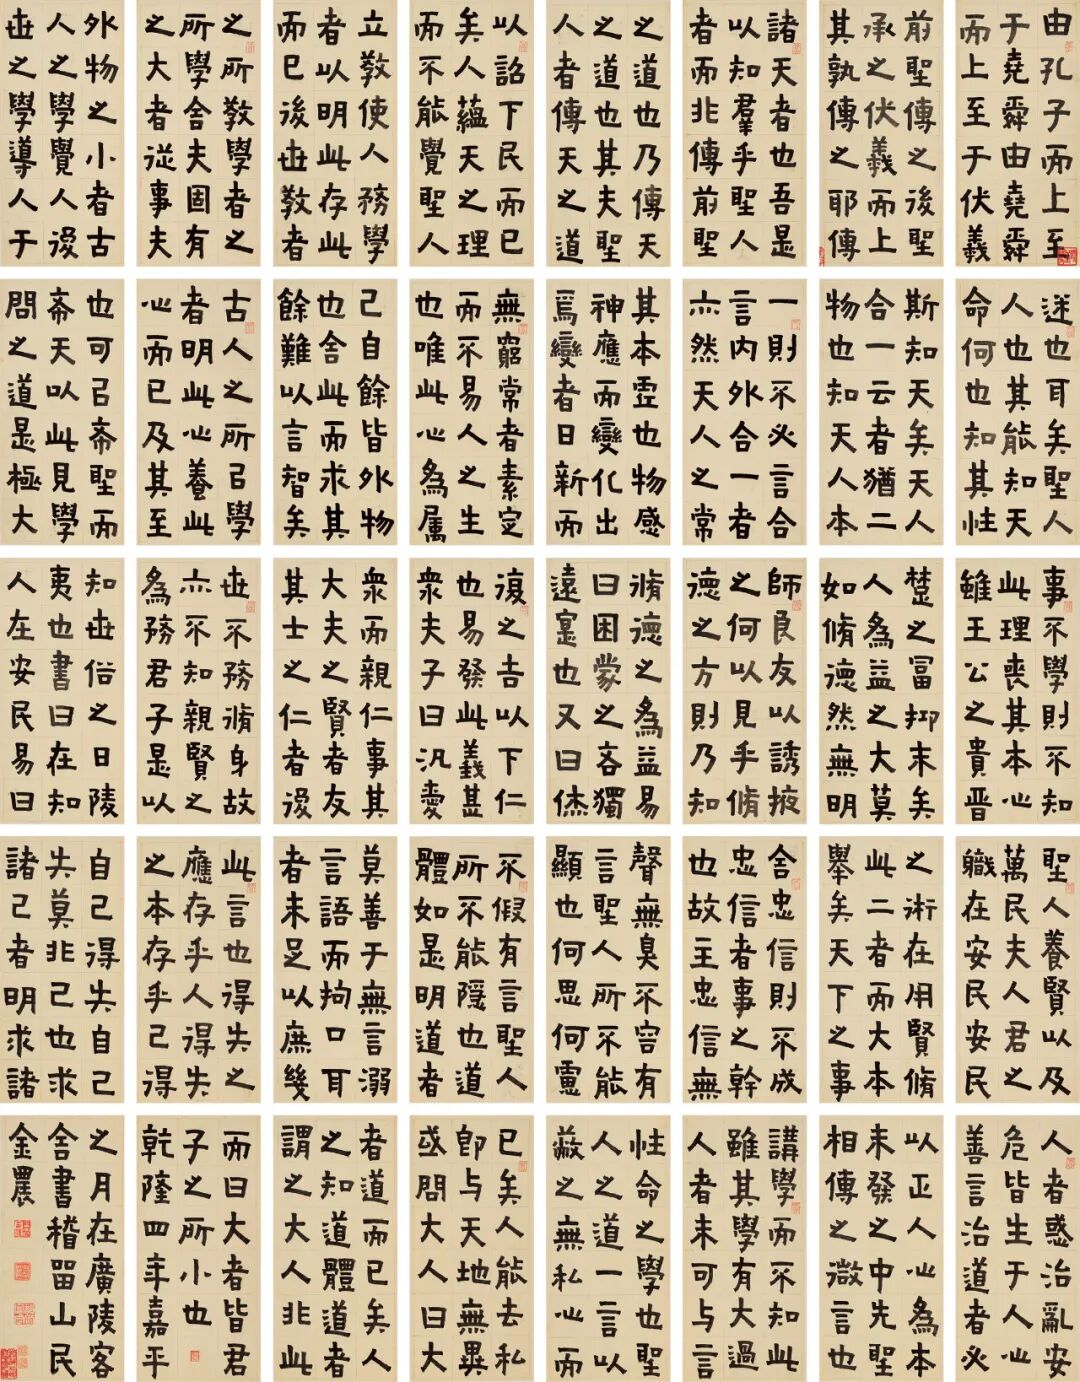 由孔子而上至
于堯舜由堯舜
而上至于伏羲
前聖傳之後聖
承之伏羲而上
其孰傳之耶傳
諸天者也吾是
以知羣乎聖人
者而非傳前聖
之道也乃傳天
之道也其夫聖
人者傳天之道
以詔下民而已
矣人蘊天之理
而不能覺聖人
立教使人務學
者以明此存此
而已後世教者
之所教學者之
所學舍夫固有
之大者從事夫
外物之小者古
人之學覺人後
世之學導人于
迷也耳矣聖人
人也其能知天
命何也知其性
斯知天矣天人
合一云者猶二
物也知天人本
一則不必言合
言内外合一者
亦然天人之常
其本虛也物感
神應而變化出
焉變者日新而
無窮常者素定
而不易人之生
也唯此心為屬
己自餘皆外物
也舍此而求其
餘難以言智矣
古人之所㠯學
者明此心養此
心而已及其至
也可㠯希聖而
希天以此見學
問之道是極大
事不學則不知
此理喪其本心
雖王公之貴晉
楚之富抑末矣
人為益之大莫
如脩德然無明
師良友以誘掖
之何以見乎脩
德之方則乃知
脩德之為益易
曰困蒙之吝獨
遠寔也又曰休
復之吉以下仁
也易發此義甚
衆夫子曰汎愛
衆而親仁事其
大夫之賢者友
其士之仁者後
世不務脩身故
亦不知親賢之
為務君子是以
知世俗之日陵
夷也書曰在知
人在安民易曰
聖人養賢以及
萬民夫人君之
職在安民安民
之術在用賢脩
此二者而大本
舉矣天下之事
舍忠信則不成
忠信者事之幹
也故主忠信無
聲無臭不容有
言聖人所不能
顯也何思何慮
不假有言聖人
所不能隱也道
體如是明道者
莫善于無言溺
言語而拘口耳
者未足以庶幾
此言也得失之
應存乎人得失
之本存乎己得
自己得失自己
失莫非己也求
諸己者明求諸
人者惑治亂安
危皆生于人心
善言治道者必
以正人心為本
未發之中先聖
相傳之微言也
講學而不知此
雖其學有大過
人者未可与言
性命之學也聖
人之道一言以
蔽之無私心而
已矣人能去私
即与天地無異
或問大人曰大
者道而已矣人
之知道體道者
謂之大人非此
而曰大者皆君
子之所小也
乾隆四年嘉平
之月在廣陵客
舍書稽留山民
金農